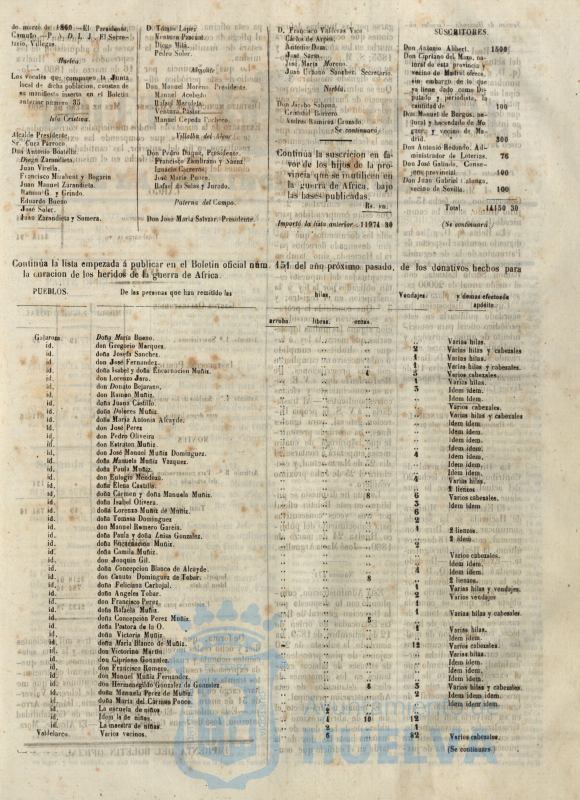 de marzo de 1860.—El Presidente,
Camuño.—P. A. D. L. J. El Secre-
tario, Villegas.
Huelva.
Los vocales que componen la Junta
local de dicha poblacion, constan de
un manifiesto inserto en el Boletin
anterior número 35
Isla Cristina.
Alcalde Presidente,
Sr. Cura Párroco
Don Antonio Boutella.
Diego Zarandieta.
Juan Virella.
Francisco Mirabent y Bogarin
Juan Manuel Zarandieta.
Ramon G. y Grindo.
Eduardo Bueno
José Soler.
Juan Zarandieta y Somera.
D. Tomás Lopez
Ventura Pascual
Diego Milá.
Pedro Soler.
Almonte
Don Manuel Moreno Presidente.
Manuel Acebedo
Rafael Moculeta.
Ventura Pastor
Manuel Cepeda Pacheco.
Villalba del Alcor
Don Pedro Duque, Presidente.
Francisco Zambrano y Saenz
Ignacio Carreras.
José María Ponce.
Rafael de Salas y Jurado.
Paterna del Campo.
Don José Maria Salvzar, Presidente.
D. Francisco Valderas Vico
Cárlos de Arpon.
Antonio Dom.
José Saenz.
José Maria Moreno.
Juan Urbano Sanchez, Secretario.
Niebla.
Don Jacobo Sabona.
Cristobal Borrero
Andres Ramirez Cruzado.
(Se continuará)
Continúa la suscricion en fa-
vor de los hijos de la pro-
vincia que se inutilicen en
la guerra de Africa, bajo
las bases publicadas.
Rs. vn.
Importó la lista anterior 11974 30
SUSCRITORES.
Don Antonio Alibert. 1500
Don Cipriano del Mazo, na-
tural de esta provincia y
vecino de Madrid ofrece,
sin embargo de lo que
ya tiene dado como Di-
putado y periodista, la
cantidad de 100
Don Manuel de Burgos, na-
tural y hacendado de Mo-
guer, y vecino de Ma-
drid. 300
Don Antonio Redondo, Ad-
ministrador de Loterías. 76
Don José Galindo, Conse-
gero provincial 100
Don Juan Gabriel Calonga,
vecino de Sevilla. 100
Total. 14150 30
(Se continuará)
Continúa la lista empezada á publicar en el Boletin oficial núm. 151 del año próximo pasado, de los donativos hechos para
la curacion de los heridos de la guerra de Africa.
PUEBLOS. De las personas que han remitido las hilas. Vendajes. y demas efectos de apósito.
arrobs. libras. onzas.
Galaroza. Doña Maria Bueno. Varias hilas.
id. don Gregorio Marquez. 2 Varias hilas y cabezales
id. doña Josefa Sanchez. 1 Varias hilas.
id. don José Fernandez. 1 Varias hilas y cabezales.
id. doña Isabel y doña Encarnacion Muñiz. 4 5 Varios cabezales.
id. don Lorenzo Jara. 1 Varias hilas.
id. don Donato Bejarano. 3 Idem idem.
id. don Ramon Muñiz. Idem idem.
id. doña Juana Castillo
id. doña Dolores Muñiz. Varios cabezales.
id. doña Maria Antonia Alcayde. Varias hilas y cabezales
id. don José Perez Idem idem.
id. don Pedro Oliveira Idem idem
id. don Estraton Muñiz. Idem idem.
id. don José Manuel Muñiz Dominguez. 4 Idem idem.
id. doña Manuela Muñiz Vazquez. Idem idem.
id. doña Paula Muñiz. Idem idem.
id. don Eulogio Mendoza. 4 Varias hilas.
id. doña Elena Castilla. 2 lienzos.
id. doña Cármen y doña Manuela Muñiz. 8 6 Varios cabezales.
id. doña Isabel Olivera. 3 Idem idem.
id. doña Lorenza Muñiz de Muñiz. 6
id. doña Tomasa Dominguez 2
id. don Manuel Romero García. 1 2 lienzos.
id. doña Paula y doña Luisa Gonzalez. 2 idem
id. doña Encarnacion Muñiz. 2
id. doña Camila Muñiz. Varios cabezales.
id. don Joaquin Gil. 3 Idem idem.
id. doña Concepcion Blanco de Alcayde. 4 Idem idem.
id. don Canuto Dominguez de Tobar. 8 2 lienzos.
id. doña Feliciana Carbajal. 1 Varias hilas y vendajes.
id. doña Angeles Tobar. 2 Varios vendajes
id. don Francisco Perez. 1
id. doña Rafaela Muñiz. 1 Varias hilas y cabezales.
id. doña Concepcion Perez Muñiz. 5
id. doña Pastora de la O. 1 Varias hilas.
id. doña Victoria Muñiz. Idem idem.
id. doña María Blanco de Muñiz. 12 Varios cabezales
id. don Victorino Martin. Varias hilas.
id. don Cipriano Gonzalez. Idem idem.
id. don Francisco Romero. Idem idem.
id. don Manuel Muñiz Fernandez. Idem idem.
id. don Hermenegildo Gonzalez de Gonzalez. 6 3 Varias hilas y cabezales.
id. doña Manuela Perez de Muñiz. Idem idem idem.
id. doña Maria del Cármen Ponce. Idem idem idem
id. La escuela de niños.
id. Idem la de niñas. 4 10 12
id. La maestra de niñas. 2 1
Valdelarco. Varios vecinos. 6 82 Varios cabezales.
(Se continuará)
Ayuntamiento de
HUELVA